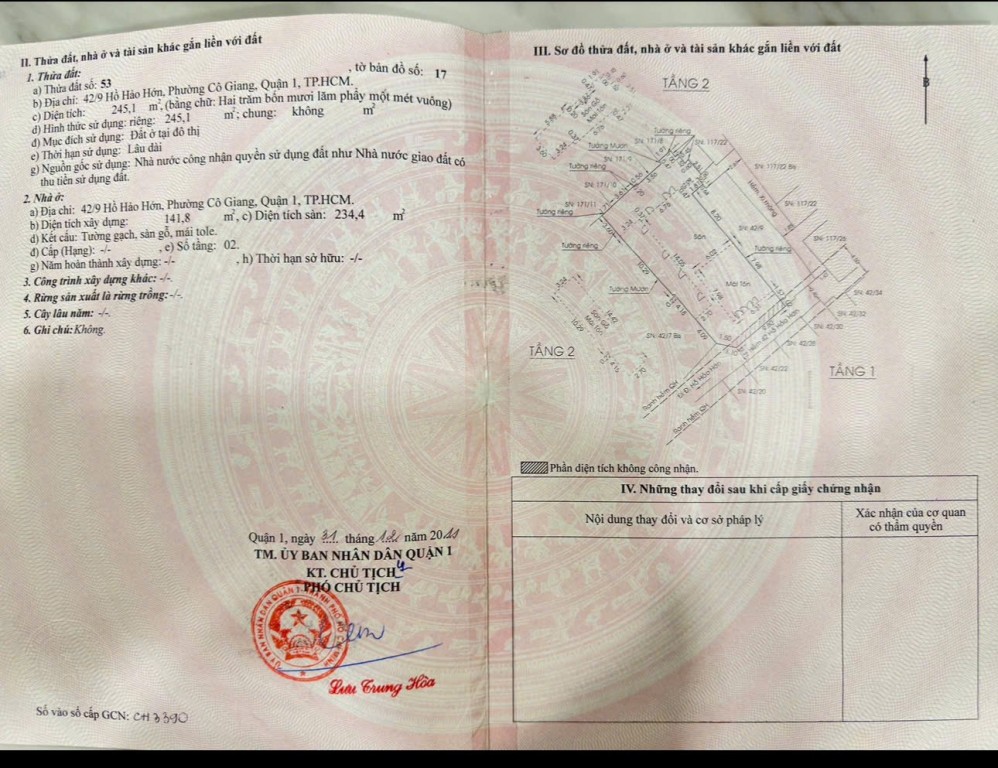 II. Thửa đất, nhà ở và tài sản khác gắn liền với đất
1. Thửa đất:
a) Thửa đất số: 53 , tờ bản đồ số: 17
b) Địa chỉ: 42/9 Hồ Hảo Hớn, Phường Cô Giang, Quận 1, TP.HCM.
c) Diện tích: 245,1 m², (bằng chữ: Hai trăm bốn mươi lăm phẩy một mét vuông)
d) Hình thức sử dụng: riêng: 245,1 m²; chung: không m²
đ) Mục đích sử dụng: Đất ở tại đô thị
e) Thời hạn sử dụng: Lâu dài
g) Nguồn gốc sử dụng: Nhà nước công nhận quyền sử dụng đất như Nhà nước giao đất có
thu tiền sử dụng đất.
2. Nhà ở:
a) Địa chỉ: 42/9 Hồ Hảo Hớn, Phường Cô Giang, Quận 1, TP.HCM.
b) Diện tích xây dựng: 141,8 m², c) Diện tích sàn: 234,4 m²
d) Kết cấu: Tường gạch, sàn gỗ, mái tole.
đ) Cấp (Hạng): -/- , e) Số tầng: 02.
g) Năm hoàn thành xây dựng: -/- , h) Thời hạn sở hữu: -/-
3. Công trình xây dựng khác: -/-
4. Rừng sản xuất là rừng trồng: -/-.
5. Cây lâu năm: -/-.
6. Ghi chú: Không.
Quận 1, ngày 31 tháng 12 năm 2011
TM. ỦY BAN NHÂN DÂN QUẬN 1
KT. CHỦ TỊCH
PHÓ CHỦ TỊCH
Lưu Trung Hòa
Số vào sổ cấp GCN: CH 3390
III. Sơ đồ thửa đất, nhà ở và tài sản khác gắn liền với đất
B
TẦNG 2
Tường riêng
SN: 171/8
SN: 117/22
Tường Mượn
SN: 117/22 Bis
Tường riêng
SN: 171/10
Hẻm xi măng
SN: 117/22
SN: 171/11
Tường riêng
Tường riêng
Sân
SN: 42/9
Tường riêng
SN: 117/26
Tường Mượn
Mái tôn
SN: 42/34
SN: 42/32
SN: 42/30
SN: 42/28
SN: 42/7 Bis
Hẻm 42 Hồ Hảo Hớn
TẦNG 2
TẦNG 1
SN: 42/22
SN: 42/20
Đi Đ. Hồ Hảo Hớn
Ranh hẻm QH
Ranh hẻm QH
Phần diện tích không công nhận.
IV. Những thay đổi sau khi cấp giấy chứng nhận
Nội dung thay đổi và cơ sở pháp lý
Xác nhận của cơ quan
có thẩm quyền